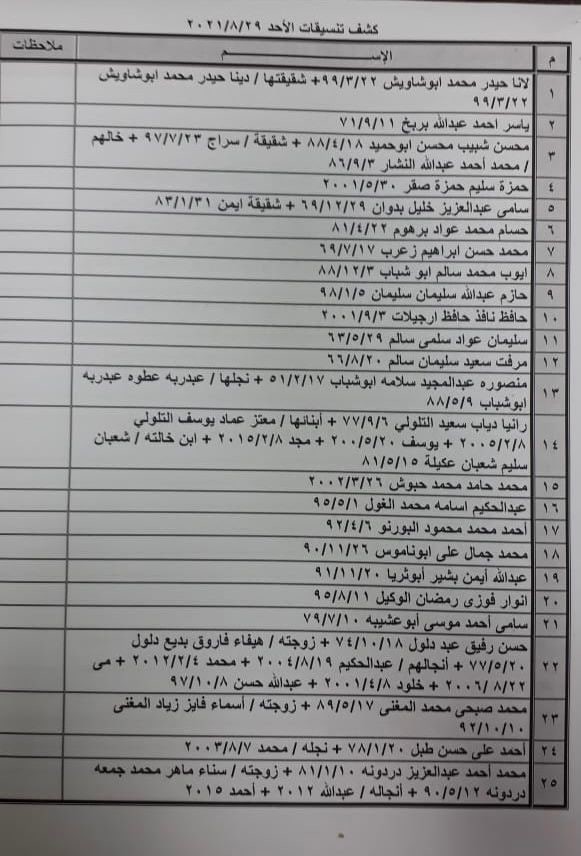 كشف تنسيقات الأحد ٢٠٢١/٨/٢٩
م الإســـم ملاحظات
١ لانا حيدر محمد ابوشاويش ٩٩/٣/٢٢+ شقيقتها / دينا حيدر محمد ابوشاويش
٩٩/٣/٢٢
٢ ياسر احمد عبدالله بربخ ٧١/٩/١١
٣ محسن شبيب محسن ابوحميد ٨٨/٤/١٨ + شقيقة / سراج ٩٧/٧/٢٣ + خالهم
/ محمد أحمد عبدالله النشار ٨٦/٩/٣
٤ حمزة سليم حمزة صقر ٢٠٠١/٥/٣٠
٥ سامى عبدالعزيز خليل بدوان ٦٩/١٢/٢٩ + شقيقة ايمن ٨٣/١/٣١
٦ حسام محمد عواد برهوم ٨١/٤/٢٢
٧ محمد حسن ابراهيم زعرب ٦٩/٧/١٧
٨ ايوب محمد سالم ابو شباب ٨٨/١٢/٣
٩ حازم عبدالله سليمان سليمان ٩٨/١/٥
١٠ حافظ نافذ حافظ ارجيلات ٢٠٠١/٩/٣
١١ سليمان عواد سلمى سالم ٦٣/٥/٢٩
١٢ مرفت سعيد سليمان سالم ٦٦/٨/٢٠
١٣ منصوره عبدالمجيد سلامه ابوشباب ٥١/٢/١٧ + نجلها / عبدربه عطوه عبدربه
ابوشباب ٨٨/٥/٩
١٤ رانيا دياب سعيد التلولي ٧٧/٩/٦ + أبنائها / معتز عماد يوسف التلولي
٢٠٠٥/٢/٨ + يوسف ٢٠٠٠/٥/٢٠ + مجد ٢٠١٥/٢/٨ + ابن خالته / شعبان
سليم شعبان عكيلة ٨١/٥/١٥
١٥ محمد حامد محمد حبوش ٢٠٠٢/٣/٢٦
١٦ عبدالحكيم اسامه محمد الغول ٩٥/٥/١
١٧ أحمد محمد محمود البورنو ٩٢/٤/٦
١٨ محمد جمال على ابوناموس ٩٠/١١/٢٦
١٩ عبدالله أيمن بشير أبوثريا ٩١/١١/٢٠
٢٠ انوار فوزى رمضان الوكيل ٩٥/٨/١١
٢١ سامى أحمد موسى أبوعشيبه ٧٩/٧/١٠
٢٢ حسن رفيق عبد دلول ٧٤/١٠/١٨ + زوجته / هيفاء فاروق بديع دلول
٧٧/٥/٢٠ + أنجالهم / عبدالحكيم ٢٠٠٤/٨/١٩ + محمد ٢٠١٢/٢/٤ + مى
٢٠٠٦/ ٨/٢٢ + خلود ٢٠٠١/٤/٨ + عبدالله حسن ٩٧/١٠/٨
٢٣ محمد صبحى محمد المغنى ٨٩/٥/١٧ + زوجته / أسماء فايز زياد المغنى
٩٢/١٠/١٠
٢٤ أحمد على حسن طبل ٧٨/١/٢٠ + نجله / محمد ٢٠٠٣/٨/٧
٢٥ محمد أحمد عبدالعزيز دردونه ٨١/١/١٠ + زوجته / سناء ماهر محمد جمعه
دردونه ٩٠/٥/١٢ + أنجاله / عبدالله ٢٠١٢ + أحمد ٢٠١٥